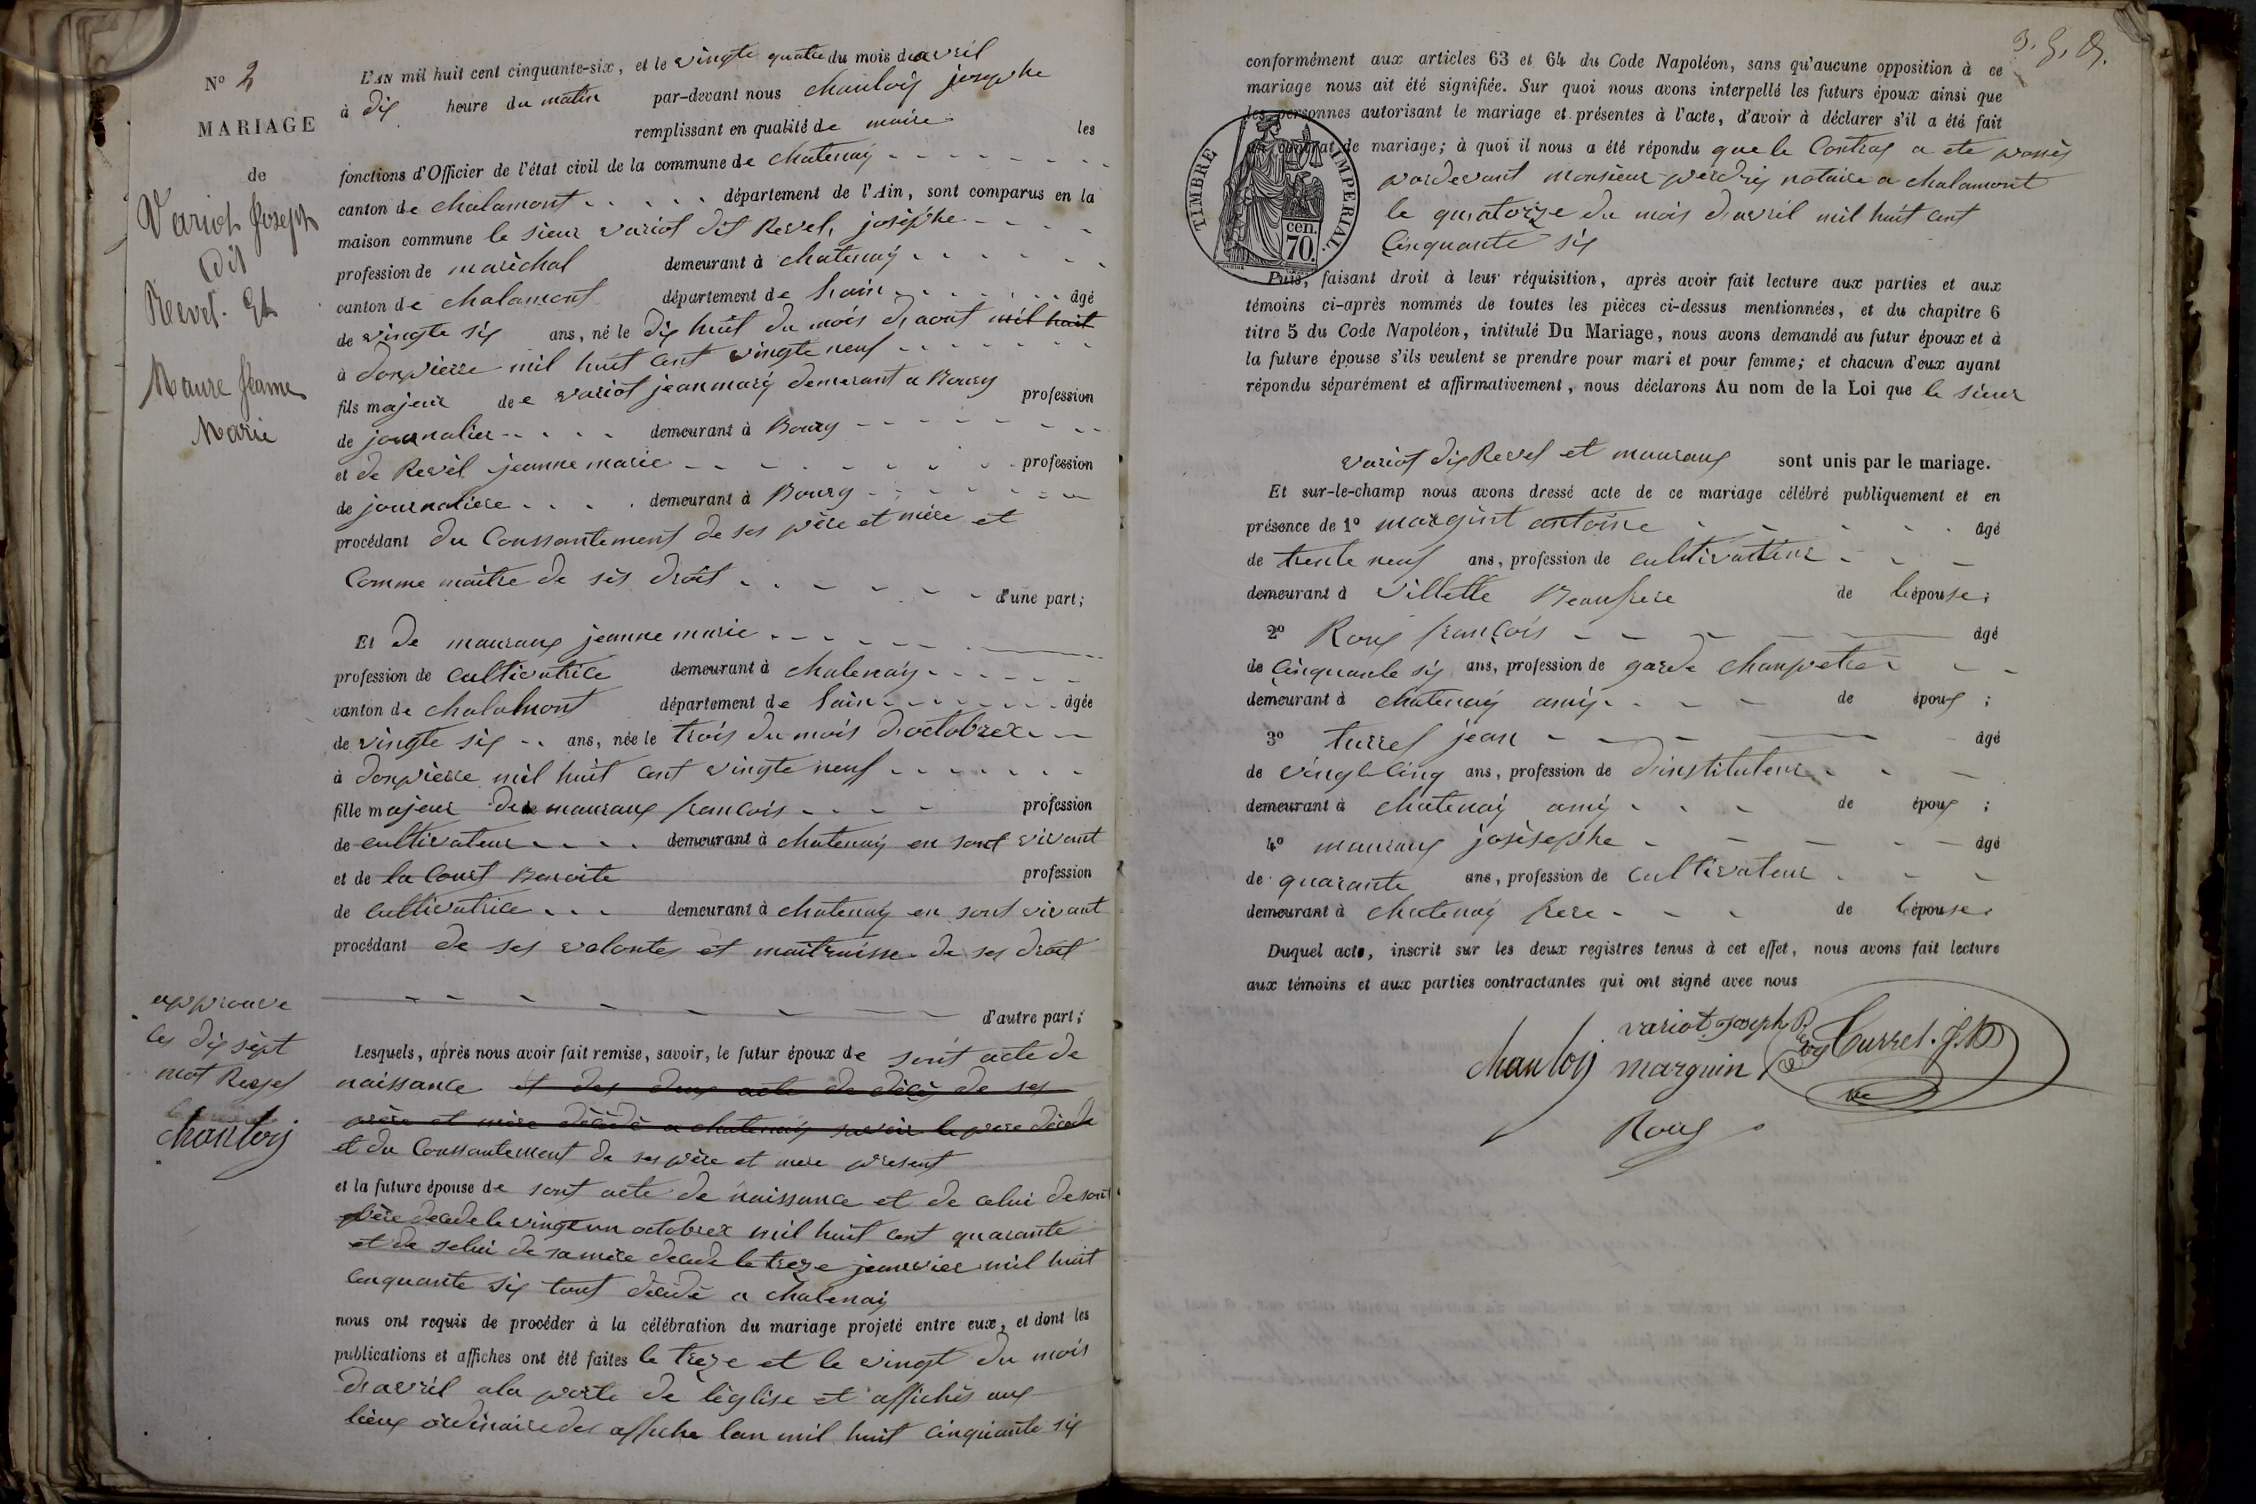 N° 2
MARIAGE
de
Variot Joseph
dit
Revel. Et
Maure Jeanne
Marie
L'AN mil huit cent cinquante-six, et le vingte quatre du mois d'avril
à dix heure du matin par-devant nous chanloij josephe
remplissant en qualité de maire les
fonctions d'Officier de l'état civil de la commune de chatenaij
canton de chalamont département de l'Ain, sont comparus en la
maison commune le sieur variot dit Revel, josèphe
profession de maréchal demeurant à chatenaij
canton de chalamont département de lain âgé
de vingte six ans, né le dix huit du mois d'aout mil huit
à donpierre mil huit cent vingte neuf
fils majeur de variot jean marij demeurant a Bourg profession
de journalier demeurant à Bourg
et de Revel jeanne marie profession
de journaliere demeurant à Bourg
procédant du Conssantement de ses père et mére et
Comme maitre de sès droit
d'une part;
Et de mauraux jeanne marie
profession de cultivatrice demeurant à chatenaij
canton de chalamont département de lain âgée
de vingte six ans, née le trois du mois d'octobrex
à donpierre mil huit cent vingte neuf
fille majeur de mauraux francois profession
de cultivateur demeurant à chatenaij en sont vivant
et de la Court Benoite profession
de cultivatrice demeurant à chatenaij en sont vivant
procédant de ses volontes et maitraisse de ses droit
d'autre part;
approuve
les dix sept
mot Reyes
chanloij
Lesquels, après nous avoir fait remise, savoir, le futur époux de sont acte de
naissance et des deux acte de décès de ses
père et mère dècèdè a chatenaij savoir le pere dècede
et du Conssantement de ses père et mere present
et la future épouse de sont acte de naissance et de celui de sont
père decede le vingt un octobrex mil huit cent quarante
et de selui de sa mère decede le treze jeanvier mil huit
cinquante six tout décédé a chatenaij
nous ont requis de procéder à la célébration du mariage projeté entre eux, et dont les
publications et affiches ont été faites le treze et le vingt du mois
d'avril a la porte de l'église et affichés aux
lieux ordinaire des affiche lan mil huit cinquante six
conformément aux articles 63 et 64 du Code Napoléon, sans qu'aucune opposition à ce
mariage nous ait été signifiée. Sur quoi nous avons interpellé les futurs époux ainsi que
les personnes autorisant le mariage et présentes à l'acte, d'avoir à déclarer s'il a été fait
un contrat de mariage; à quoi il nous a été répondu que le Contras a ete passés
pardevant monsieur perdrix notaire a chalamont
le quatorze du mois d'avril mil huit cent
Cinquante six
TIMBRE IMPERIAL.
70 cen.
Puis, faisant droit à leur réquisition, après avoir fait lecture aux parties et aux
témoins ci-après nommés de toutes les pièces ci-dessus mentionnées, et du chapitre 6
titre 5 du Code Napoléon, intitulé Du Mariage, nous avons demandé au futur époux et à
la future épouse s'ils veulent se prendre pour mari et pour femme; et chacun d'eux ayant
répondu séparément et affirmativement, nous déclarons Au nom de la Loi que le sieur
variot dit Revel et mauraux sont unis par le mariage.
Et sur-le-champ nous avons dressé acte de ce mariage célébré publiquement et en
présence de 1° margint antoine âgé
de trente neuf ans, profession de cultivateur
demeurant à villette Beaufrere de lépouse;
2° Roux françois âgé
de Cinquante six ans, profession de garde chanpetre
demeurant à chatenaij amij de époux ;
3° turrel jean âgé
de vingt cinq ans, profession de d'instituteur
demeurant à chatenaij amij de époux ;
4° mauraux josèsephe âgé
de quarante ans, profession de cultivateur
demeurant à chatenaij frere de lépouse
Duquel acte, inscrit sur les deux registres tenus à cet effet, nous avons fait lecture
aux témoins et aux parties contractantes qui ont signé avec nous
variot joseph
chanloij marguin Turrel. J. M
Roux